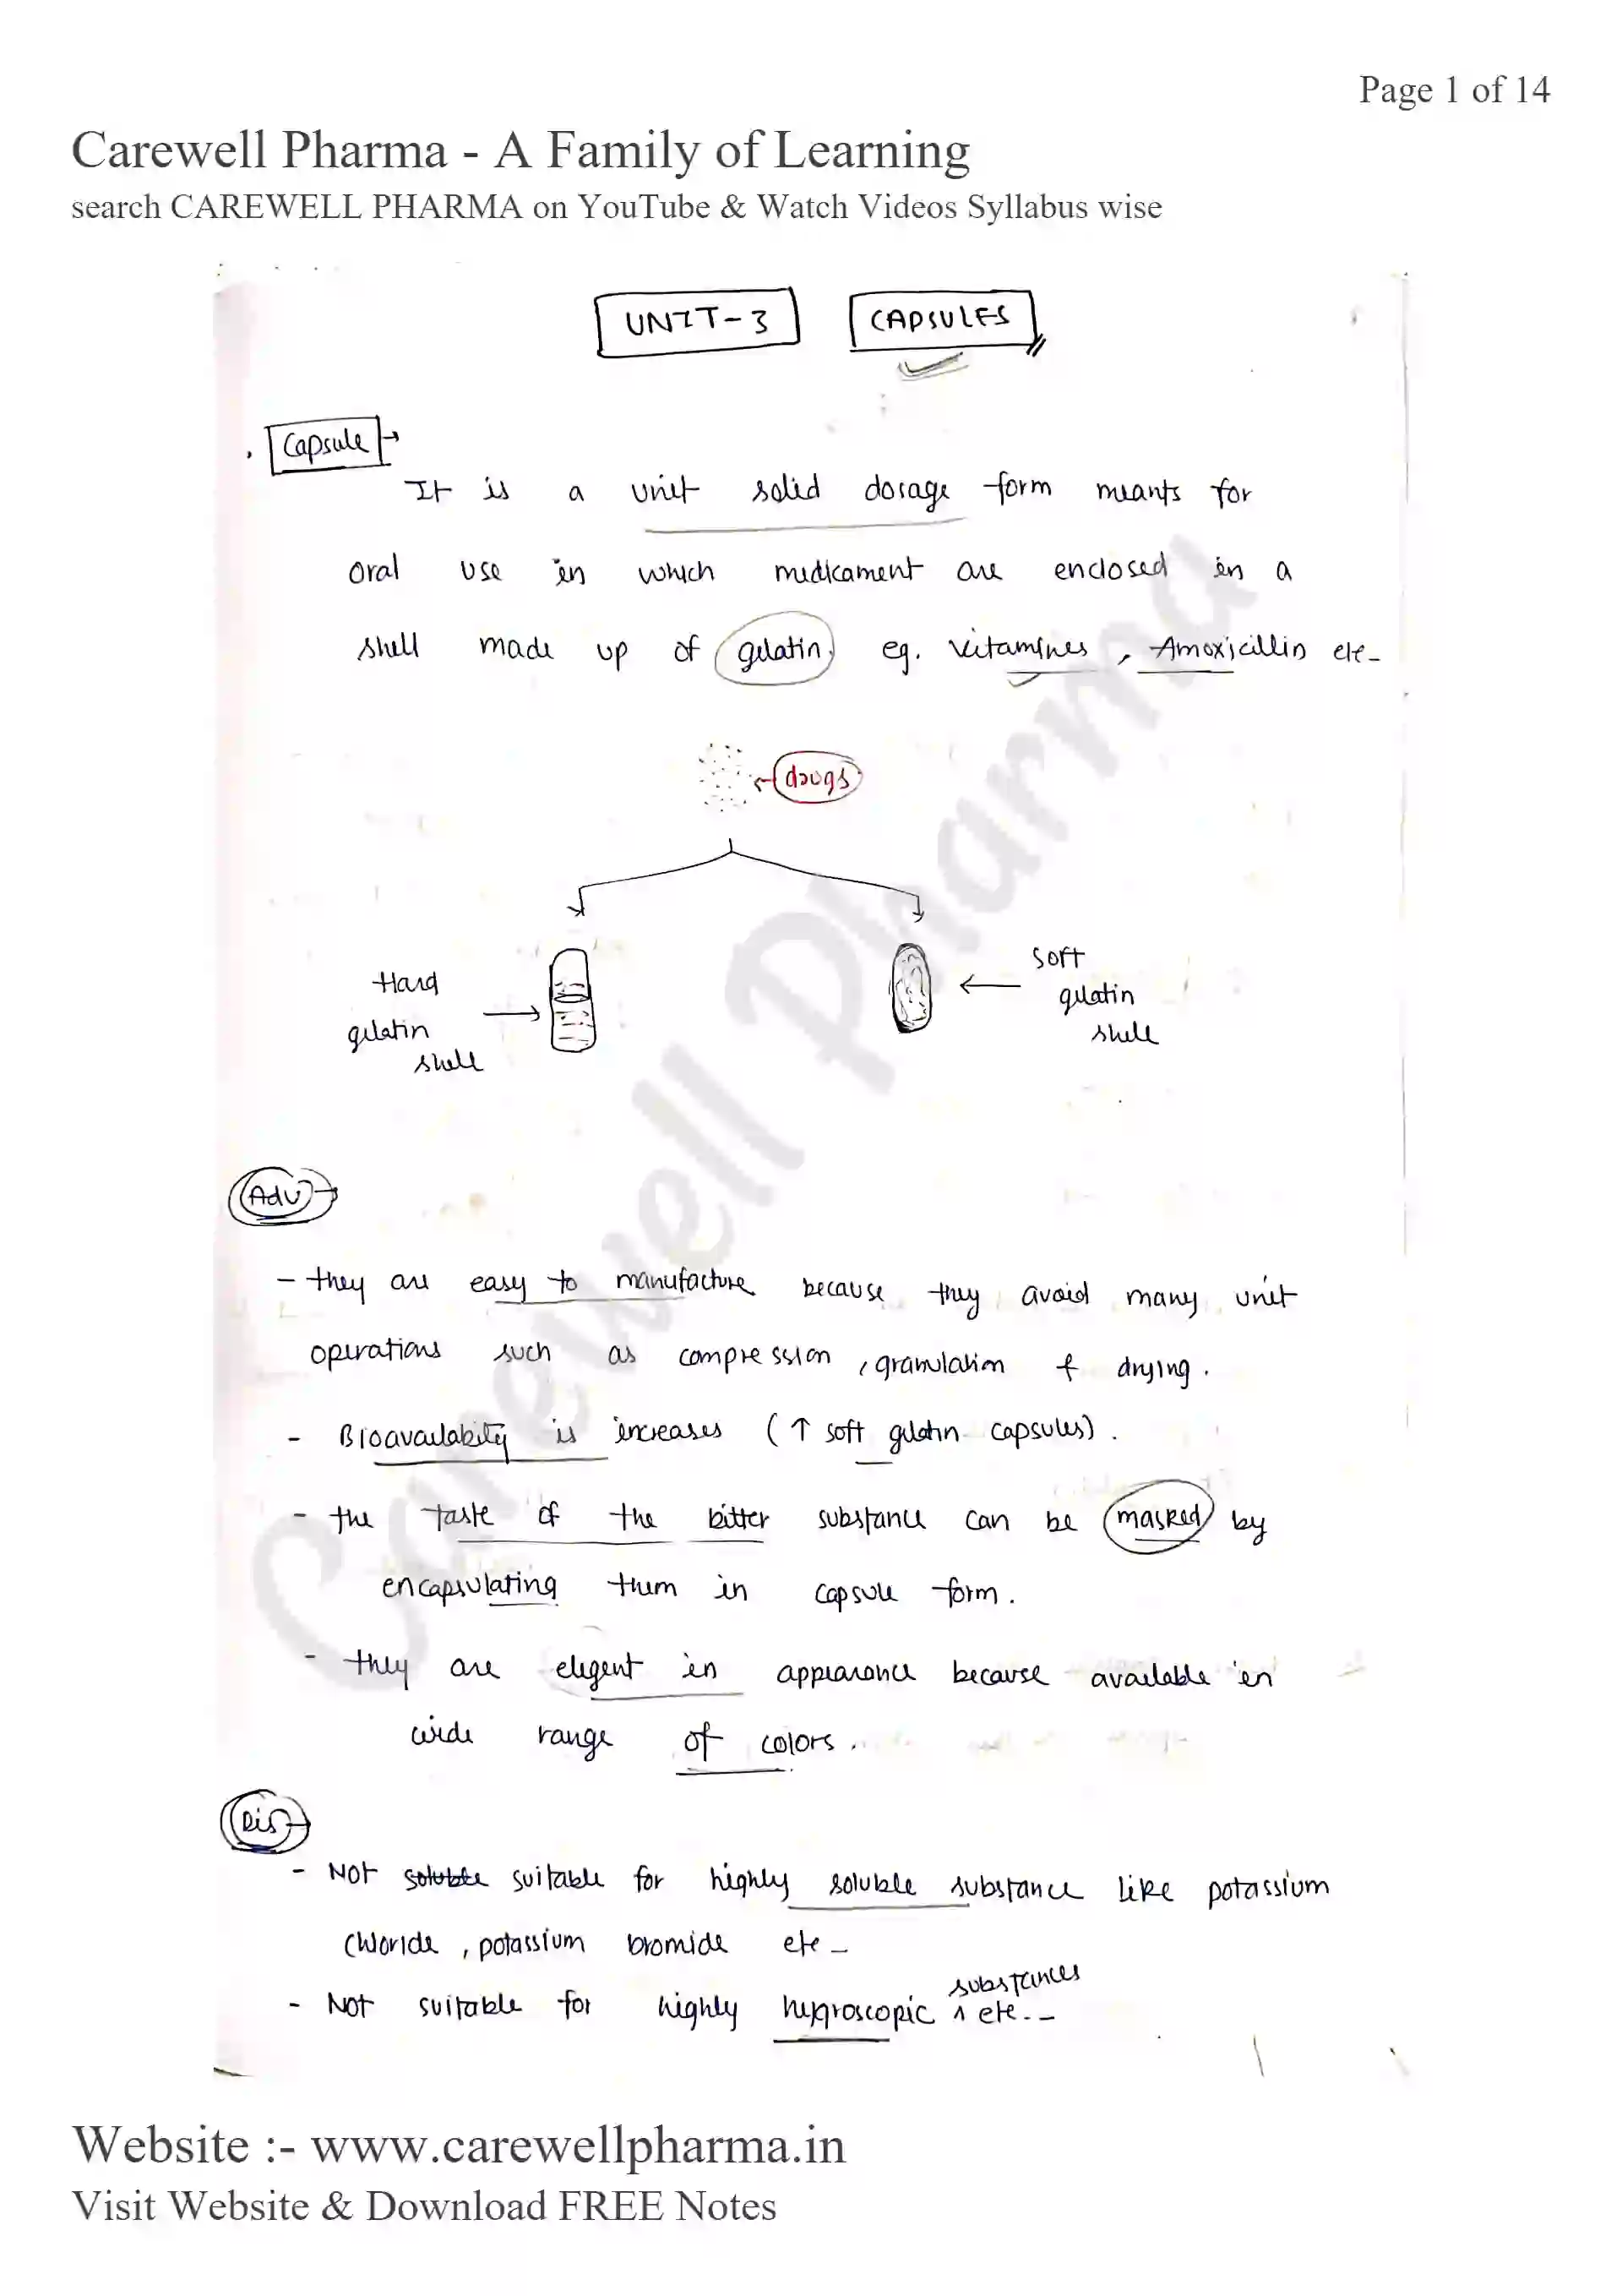 Page 1 of 14
Carewell Pharma - A Family of Learning
search CAREWELL PHARMA on YouTube & Watch Videos Syllabus wise
UNIT-3 CAPSULES
Capsule →
It is a unit solid dosage form meants for
oral use in which medicament are enclosed in a
shell made up of gelatin. eg. vitamines, Amoxicillin etc-
drugs
Hard
gelatin
shell
soft
gelatin
shell
Adv →
- they are easy to manufacture because they avoid many unit
operations such as compression, granulation & drying.
- Bioavailability is increases (↑ soft gelatin capsules).
- the taste of the bitter substance can be masked by
encapsulating them in capsule form.
- they are elegent in appearance because available in
wide range of colors.
Dis →
- Not soluble suitable for highly soluble substance like potassium
chloride, potassium bromide etc -
- Not suitable for highly hygroscopic substances etc..-
Carewell Pharma
Website :- www.carewellpharma.in
Visit Website & Download FREE Notes